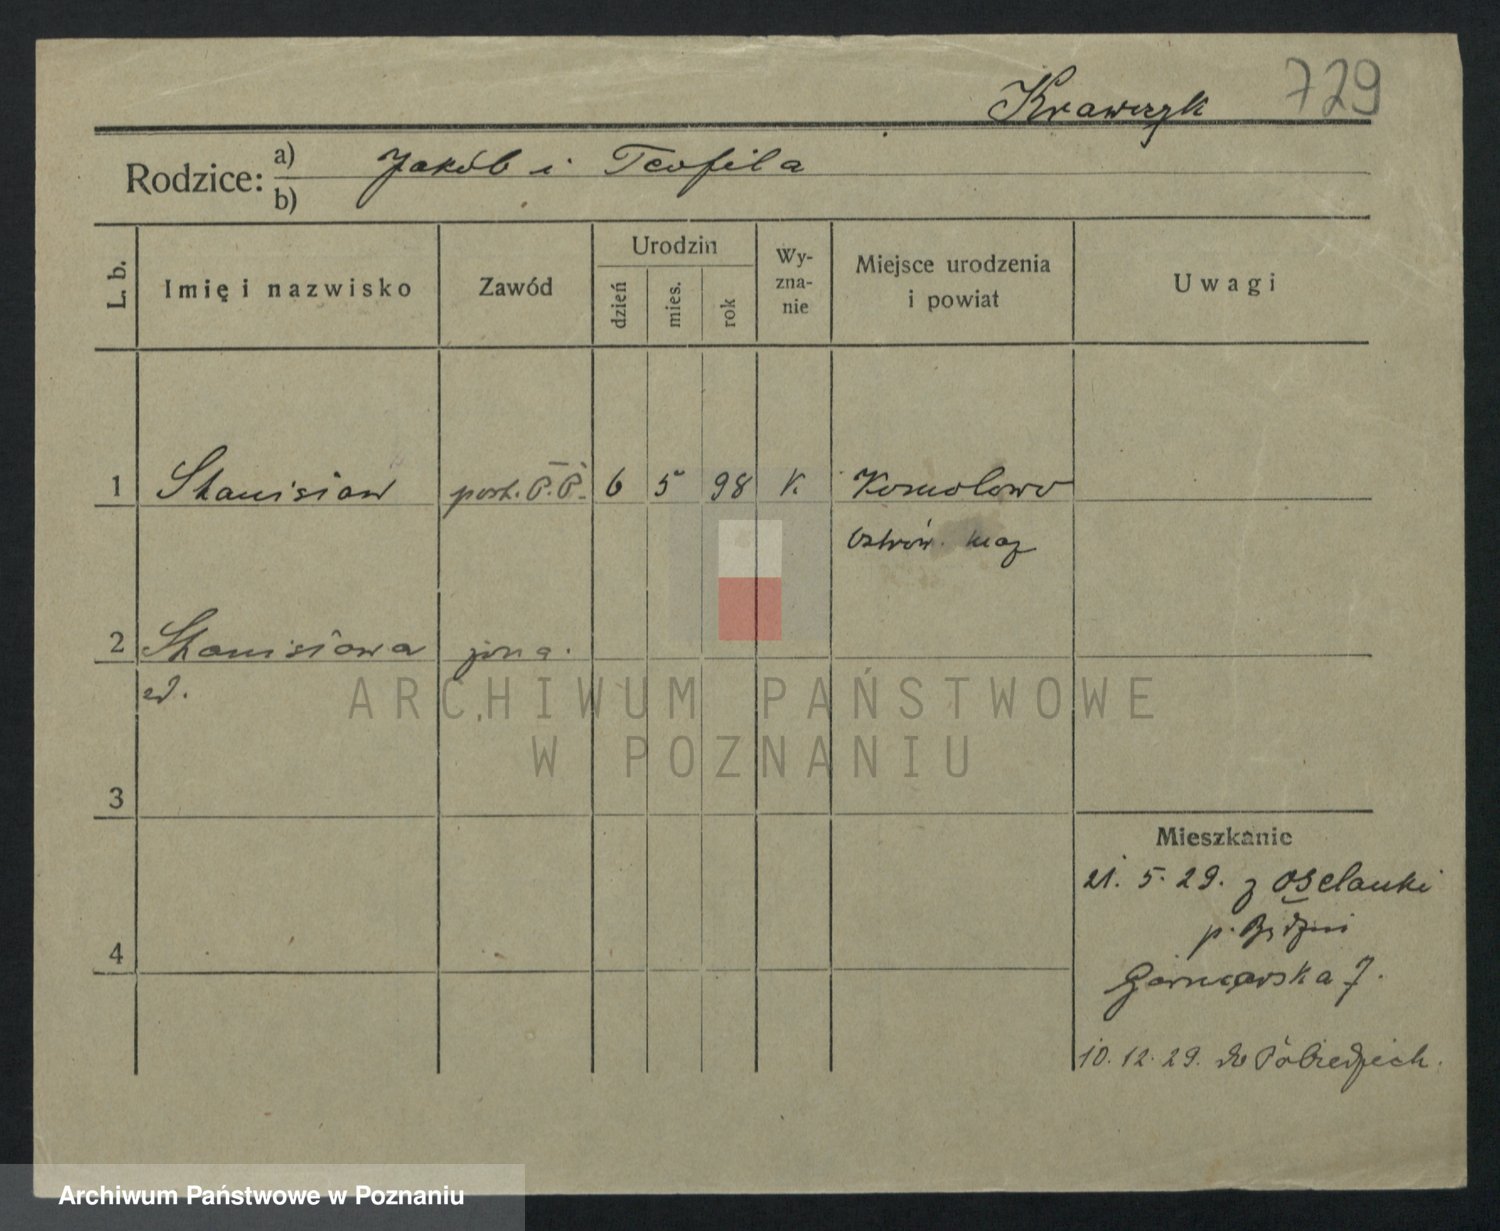 Krawczyk 729
Rodzice: a) b) Jakób i Teofila
L. b. Imię i nazwisko Zawód Urodzin dzień mies. rok Wy-zna-nie Miejsce urodzenia i powiat Uwagi
1 Stanisław post. P.P. 6 5 98 k.
Ostrów. maz
2 Stanisława żona.
ARCHIWUM PAŃSTWOWE
W POZNANIU
3
Mieszkanie
21. 5. 29. z
4 p.
Garncarska 7.
10. 12. 29. do
Archiwum Państwowe w Poznaniu